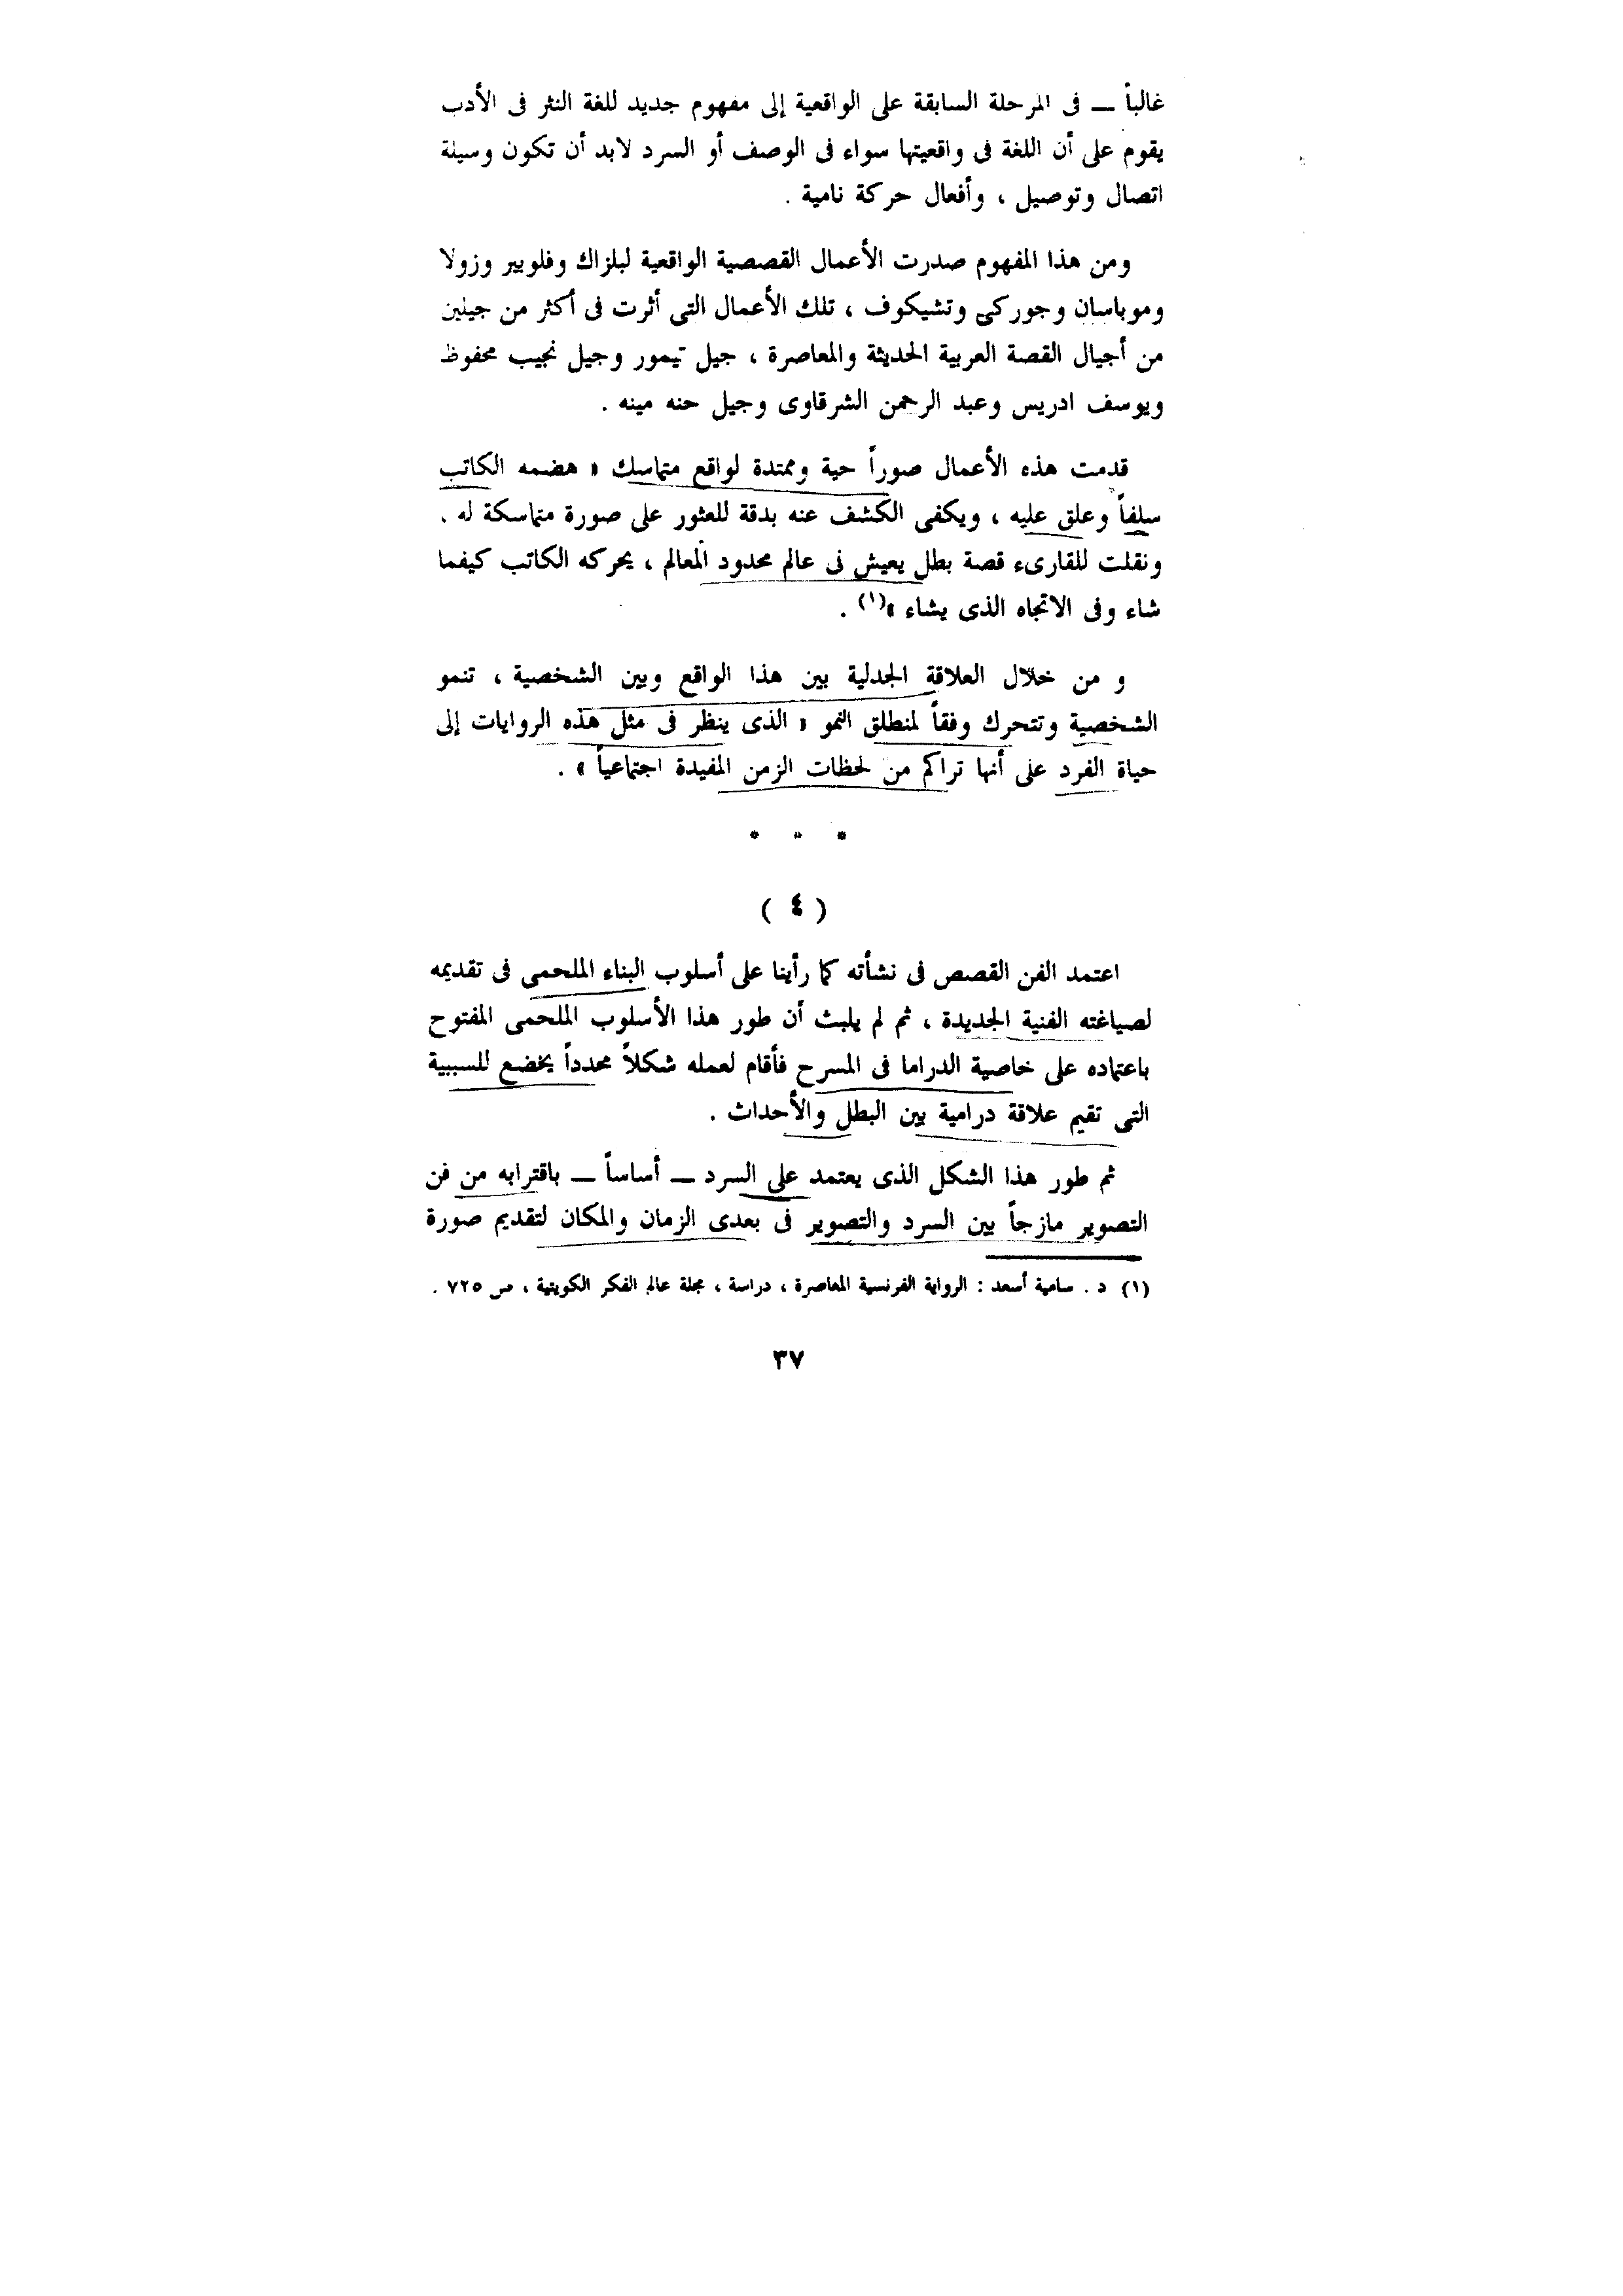 غالباً — فى المرحلة السابقة على الواقعية إلى مفهوم جديد للغة النثر فى الأدب
يقوم على أن اللغة فى واقعيتها سواء فى الوصف أو السرد لابد أن تكون وسيلة
اتصال وتوصيل ، وأفعال حركة نامية .
ومن هذا المفهوم صدرت الأعمال القصصية الواقعية لبلزاك وفلوبير وزولا
وموباسان وجوركى وتشيكوف ، تلك الأعمال التى أثرت فى أكثر من جيلين
من أجيال القصة العربية الحديثة والمعاصرة ، جيل تيمور وجيل نجيب محفوظ
ويوسف ادريس وعبد الرحمن الشرقاوى وجيل حنه مينه .
قدمت هذه الأعمال صوراً حية وممتدة لواقع متماسك « هضمه الكاتب
سلفاً وعلق عليه ، ويكفى الكشف عنه بدقة للعثور على صورة متماسكة له .
ونقلت للقارىء قصة بطل يعيش فى عالم محدود المعالم ، يحركه الكاتب كيفما
شاء وفى الاتجاه الذى يشاء »(١) .
و من خلال العلاقة الجدلية بين هذا الواقع وبين الشخصية ، تنمو
الشخصية وتتحرك وفقاً لمنطلق النمو « الذى ينظر فى مثل هذه الروايات إلى
حياة الفرد على أنها تراكم من لحظات الزمن المفيدة اجتماعياً » .
* * *
( ٤ )
اعتمد الفن القصص فى نشأته كما رأينا على أسلوب البناء الملحمى فى تقديمه
لصياغته الفنية الجديدة ، ثم لم يلبث أن طور هذا الأسلوب الملحمى المفتوح
باعتماده على خاصية الدراما فى المسرح فأقام لعمله شكلاً محدداً يخضع للسببية
التى تقيم علاقة درامية بين البطل والأحداث .
ثم طور هذا الشكل الذى يعتمد على السرد — أساساً — باقترابه من فن
التصوير مازجاً بين السرد والتصوير فى بعدى الزمان والمكان لتقديم صورة
(١) د . سامية أسعد : الرواية الفرنسية المعاصرة ، دراسة ، مجلة عالم الفكر الكويتية ، ص ٧٢٥ .
٣٧